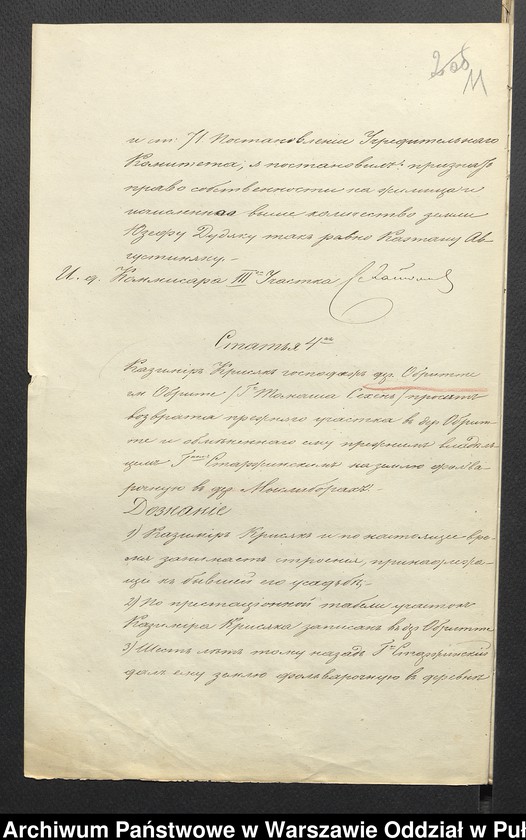 11
и ст. 71 Постановленiи Учредительнаго
Комитета, я постановилъ: признать
право собственности на жилища и
исчисленное выше количество земли
Юзефу Дудяку такъ равно Каэтану Ав-
густиняку.-
И. д. Коммисара III го Участка
Статья 4ая
Казимiръ Крисякъ господарь дер. Обритте
им. Обрите /Гна Томаша / проситъ
возврата прежняго участка в дер. Обрит-
те и обмѣненнаго ему прежнимъ владѣль-
цемъ Гномъ Старжинскимъ на землю фольва-
рочную в дер.
Дознанiе
1) Казимiръ Крисякъ и по настоящее вре-
мя занимаетъ строенiя, принадлежа-
щiе къ бывшей его усадьбѣ,-
2) По престацiонной табели участокъ
Казимера Крисяка записанъ в дер. Обритте
3) Шесть лѣтъ тому назадъ Гнъ Старжинскiй
далъ ему землю фольварочную в деревнѣ
Archiwum Państwowe w Warszawie Oddział w Puł